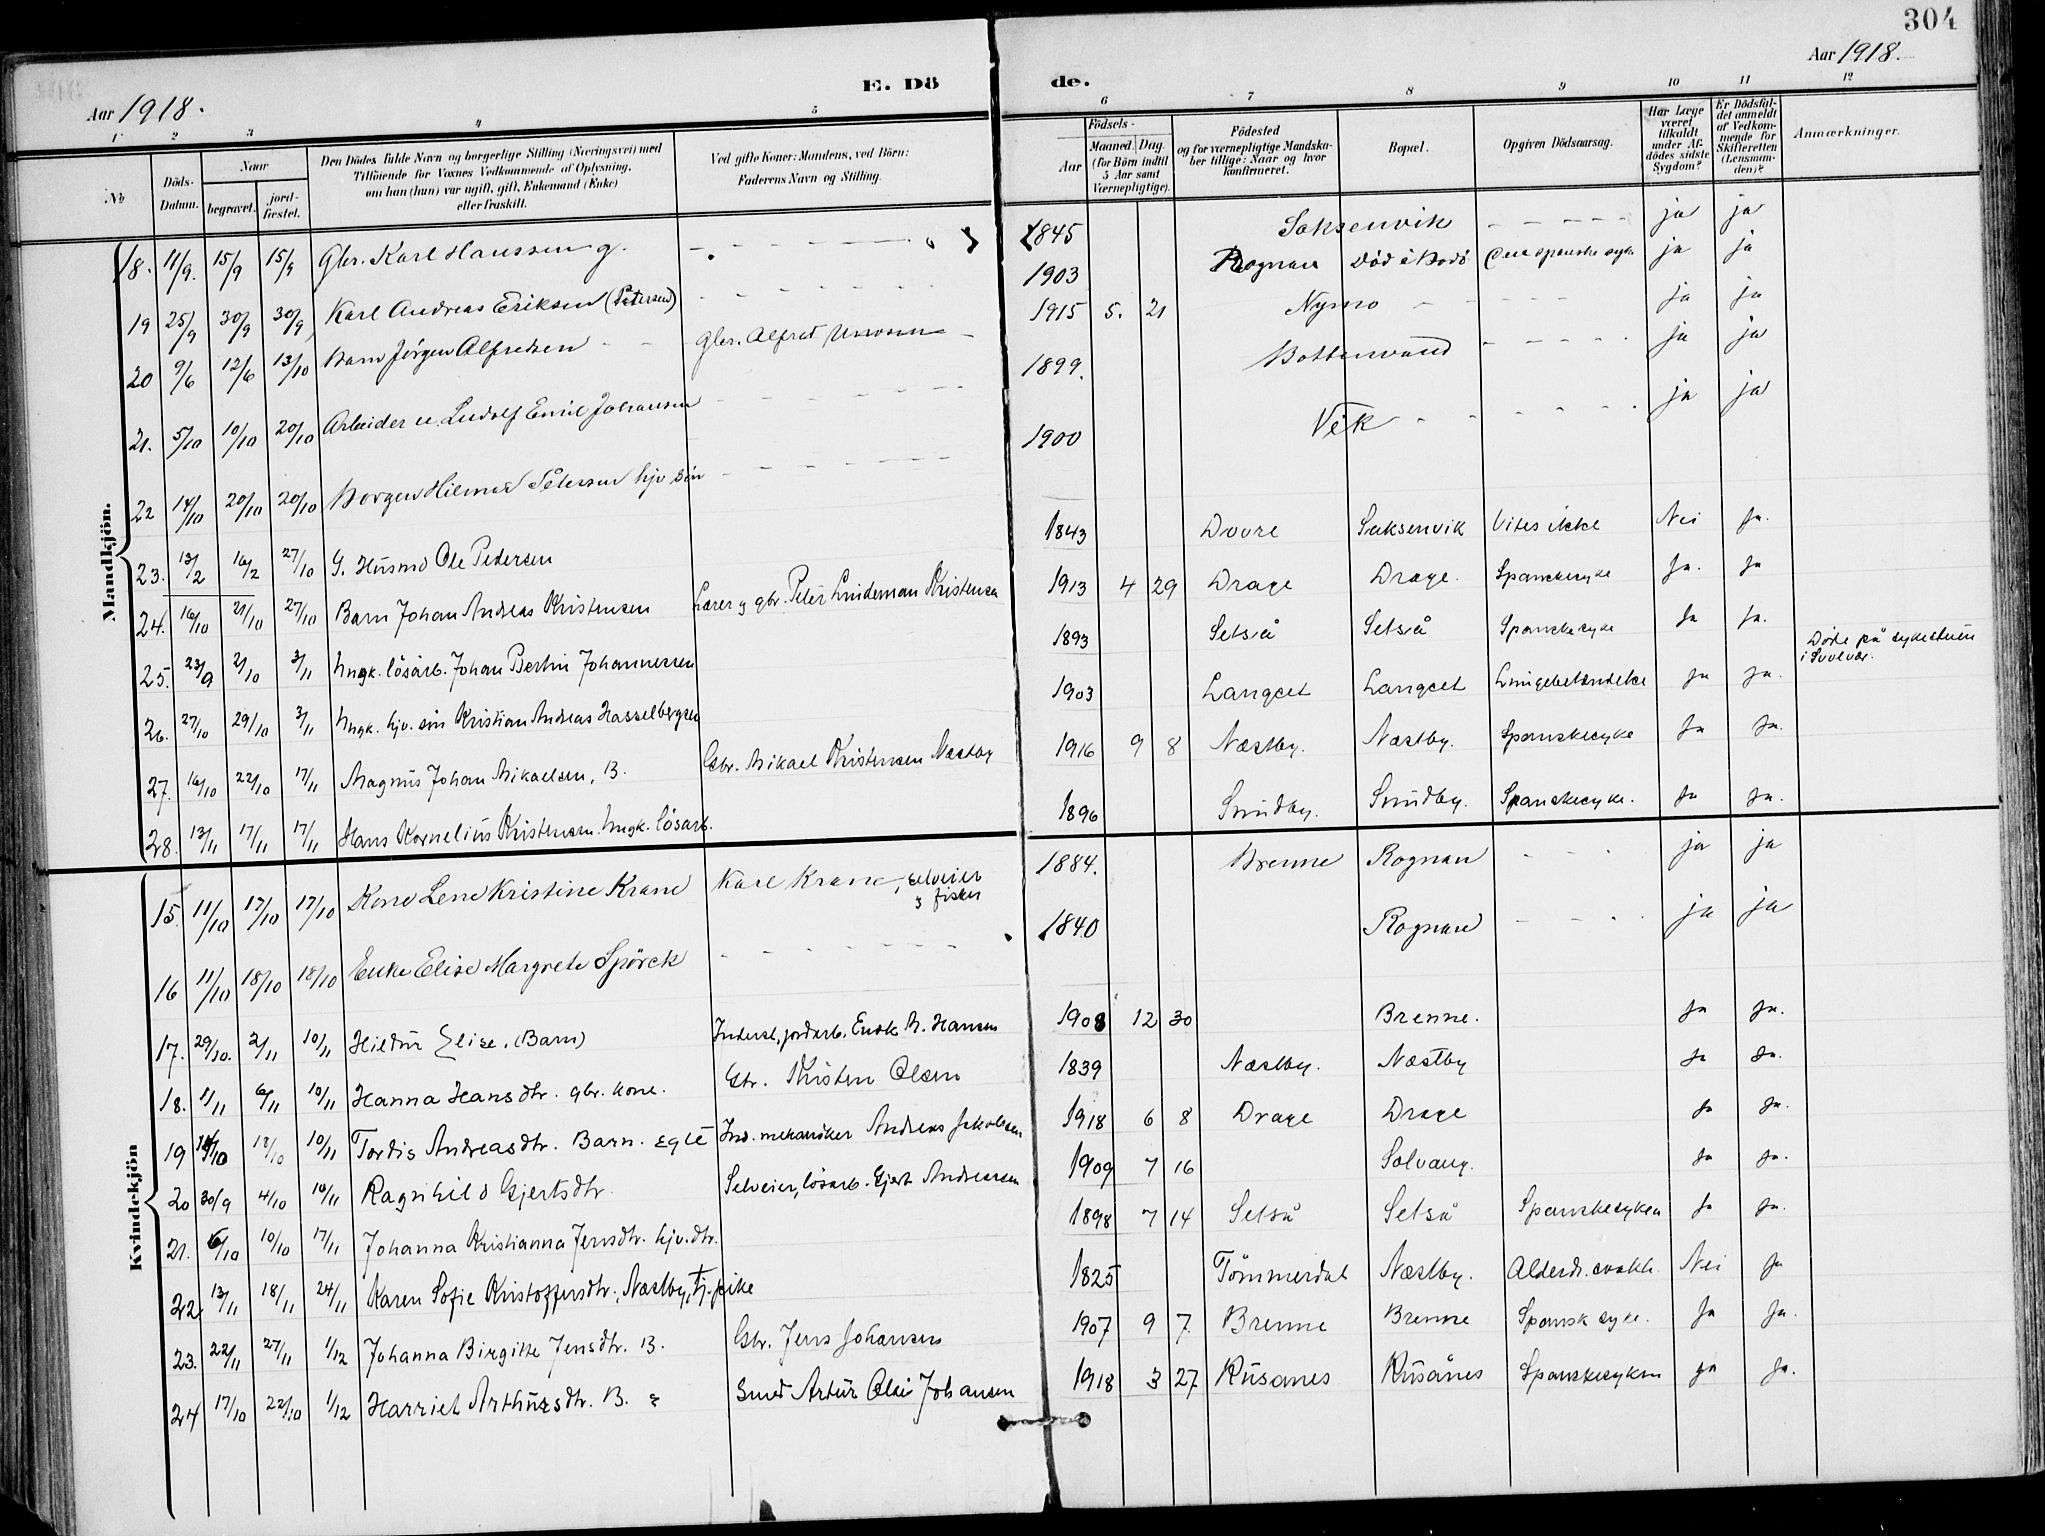 304
Aar 1918.
E. Dö de.
Aar 1918.
1 2 3 4 5 6 7 8 9 10 11 12
No
Döds-Datum.
Naar
begravet.
jord-fæstet.
Den Dödes fulde Navn og borgerlige Stilling (Næringsvei) med Tilföiende for Voxnes Vedkommende af Oplysning, om han (hun) var ugift, gift, Enkemand (Enke) eller fraskilt.
Ved gifte Koner: Mandens, ved Börn: Faderens Navn og Stilling.
Födsels-
Aar
Maaned. Dag.
(for Börn indtil 5 Aar samt Værnepligtige).
Födested og for værnepligtige Mandskaber tillige: Naar og hvor konfirmeret.
Bopæl.
Opgiven Dödsaarsag.
Har Læge været tilkaldt under Afdödes sidste Sygdom?
Er Dödsfaldet anmeldt af Vedkommende for Skifteretten (Lensmanden)?
Anmærkninger.
Mandkjön.
18. 11/9. 15/9 15/9 Gbr. Karl Hanssen g. 1845 Saksenvik ja ja
19 25/9 30/9 30/9 Karl Andreas Eriksen (Petersen) 1903 Rognan Död i Bodö spanske syke ja ja
20 9/6 12/6 13/10 Barn Jörgen Alfredsen Gbr. Alfred 1915 5. 21 Nymo ja ja
21. 5/10 10/10 20/10 Arbeider u. Ludolf Emil Johansen 1899. Bottenvand ja ja
22 14/10 20/10 20/10 Borgen Hilmar Petersen hjv sön 1900 Vik ja ja
23. 13/2 16/2 27/10 G. Husmd Ole Pedersen 1843 Dovre Saksenvik Vites ikke Nei Ja.
24. 16/10 21/10 27/10 Barn Johan Andreas Kristensen Lærer og gbr. Peter Lindeman Kristensen 1913 4 29 Drage Drage. Spanskesyke Ja. Ja
25. 23/9 2/10 3/11 Ungk. lösarb. Johan Bertin Johannessen 1893 Setså Setså Spanskesyke Ja Ja. Döde på sykestuen i Svolvær.
26. 27/10 29/10 3/11 Ungk. hjv. sön Kristian Andreas Hasselbergsen 1903 Langset Langset Lungebetændelse Ja Ja.
27. 16/10 22/10 17/11 Magnus Johan Mikaelsen, B. Gbr. Mikael Kristensen Næstby 1916 9 8 Næstby. Næstby. Spanskesyke Ja Ja.
28. 13/11 17/11 17/11 Hans Kornelius Kristensen Ungk. lösarb. 1896 Sundby. Sundby. Spanskesyke. Ja Ja.
Kvindekjön
15. 11/10 17/10 17/10 Kone Lene Kristine Krane Karl Krane, selveier og fisker 1884. Brenne Rognan ja ja
16 11/10 18/10 18/10 Enke Elise Margrete Spörck 1840 Rognan ja ja
17. 29/10. 2/11 10/11 Hildur Elise. (Barn) Inderst, jordarb. Enok M. Hansen 1908 12 30 Brenne. Ja Ja.
18. 1/11 6/11 10/11 Hanna Hansdtr. gbr. kone. Gbr. Kristen Olsen 1839 Næstby. Næstby Ja Ja.
19 14/10 12/10 10/11 Tordis Andreasdtr. Barn. egte Ind. mekaniker Andreas Jakobsen 1918 6 8 Drage Drage Ja Ja.
20 30/9 4/10 10/11 Ragnhild Gjertsdtr. Selveier, lösarb. Gjert Andreassen 1909 7 16 Solvang. Ja Ja.
21. 6/10 10/10 17/11 Johanna Kristianna Jensdtr. hjv. dtr. 1898 7 14 Setså Setså Spanskesyken Ja Ja.
22. 13/11 18/11 24/11 Karen Sofie Kristoffersdtr., Næstby, tj. pike 1825 Tömmerdal Næstby. Alderd. svakh. Nei Ja
23. 22/11 27/11 1/12 Johanna Birgitte Jensdtr. B. Gbr. Jens Johansen 1907 9 7 Brenne Brenne Spansk syke. Ja Ja.
24 17/10 22/10 1/12 Harriet Arthursdtr. B. Smed Artur Olai Johansen 1918 3 27 Rusånes Rusånes Spanskesyken Ja Ja.